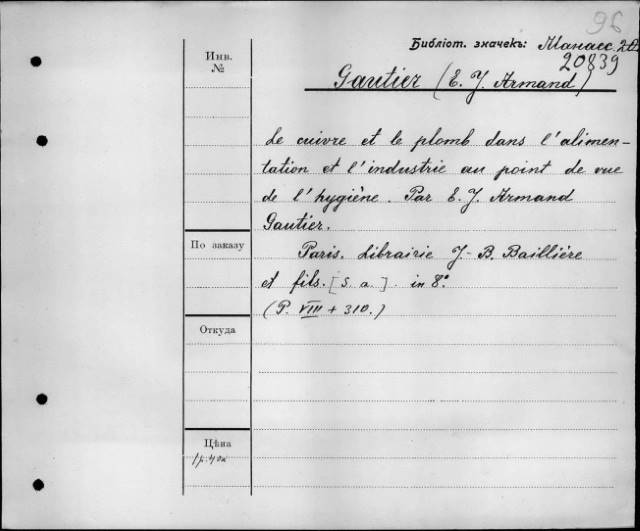 96
Библіот. значекъ: Манасс.
20839
Инв.
№
Gautier (E. J. Armand)
Le cuivre et le plomb dans l'alimen-
tation et l'industrie au point de vue
de l'hygiène. Par E. J. Armand
Gautier.
По заказу
Paris. Librairie J.-B. Baillière
et fils. [S. a.] in 8°
(P. VIII + 310.)
Откуда
Цѣна
1р. 40к